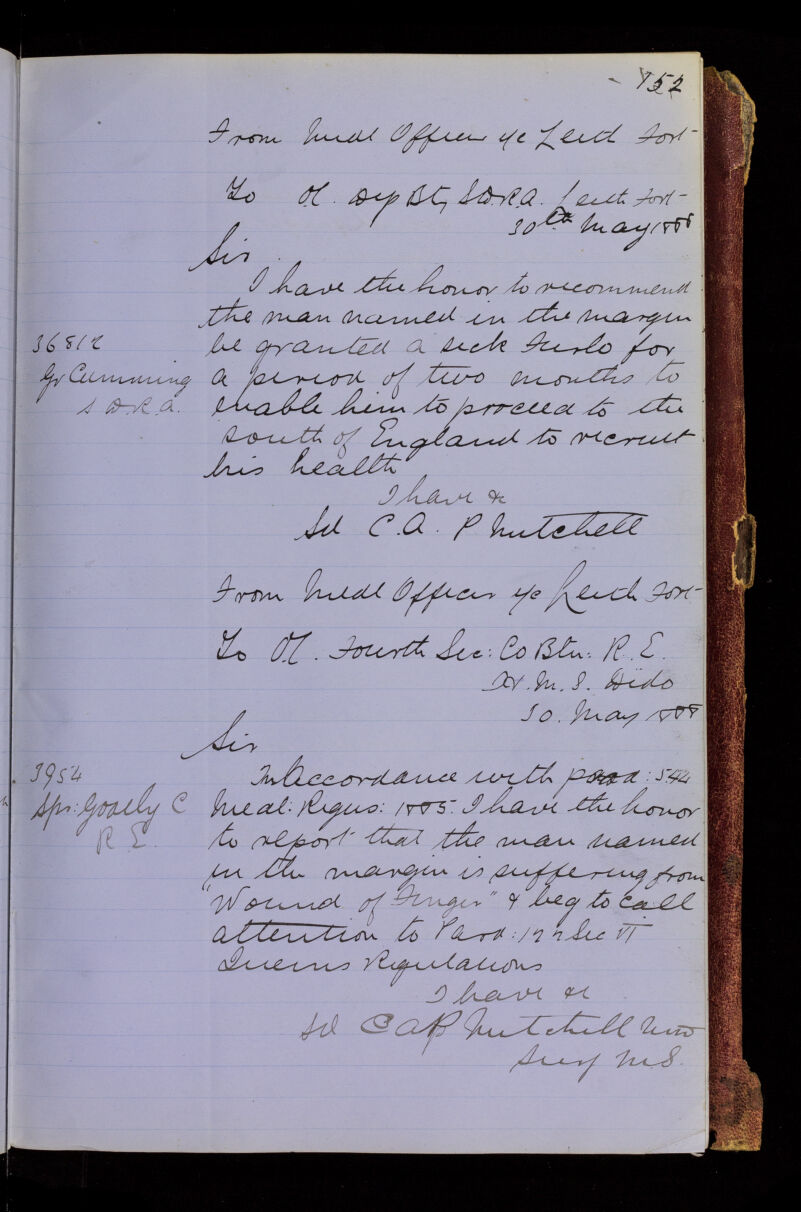 152
From Medl Officer i/c Leith Fort
To O.C. Dep Bty S.D.R.A. Leith Fort
30th May 1888
Sir
I have the honor to recommend
the man named in the margin
36812
be granted a sick Furlo for
Gr Cumming
a period of two months to
S.D.R.A.
enable him to proceed to the
south of England to recruit
his health
I have &c
Sd C.A. P Mitchell
From Medl Officer i/c Leith Fort
To O.C. Fourth Sec: Co Btn: R.E.
H.M.S. Dido
30. May 1888
Sir
3954
In accordance with para: 544
Spr: C
Medl: Regns: 1885. I have the honor
R E.
to report that the man named
in the margin is suffering from
"Wound of Finger" & beg to call
attention to Para: 122 Sec VI
Queens Regulations
I have &c
Sd C A P Mitchell
Surg M.S.